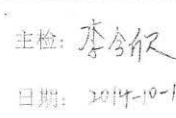 主检: 李今
日期: 2014-10-1